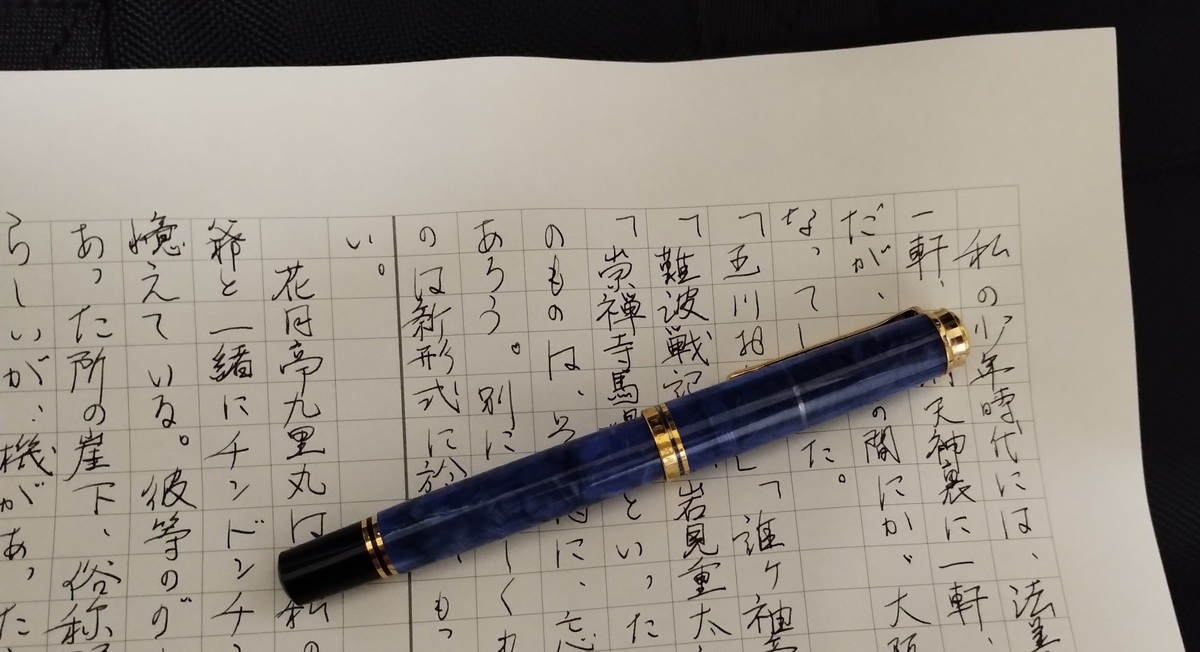 私の少年時代には、法
一軒、天神裏に一軒、
だが、の間にか大阪
なってした。
「五川お「誰ケ袖
「難波戦記岩見重太
「崇禅寺馬といった
のものは、に、忘
あろう。別にしく
のは新形式に於、もっ
い。
花月亭九里丸は私の
爺と一緒にチンドンチ
憶えている。彼等の
あった所の崖下、俗称
らしいが、機があった